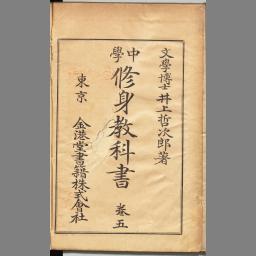 文學博士井上哲次郎著
中學
修身教科書 卷五
東京 金港堂書籍株式會社